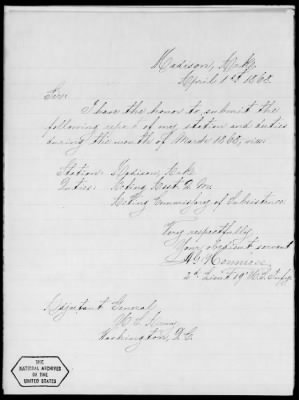 Madison, Ark.
April 1st 1868
Sir:
I have the honor to submit the
following report of my station and duties
during the month of March 1868, viz:
Station: Madison, Ark.
Duties: Acting Asst. Q. M.
Acting Commissary of Subsistence.
Very respectfully
Your obedient servant
2d Lieut 19" U.S. Infy.
Adjutant General,
U.S. Army
Washington, D.C.
THE
NATIONAL ARCHIVES
OF THE
UNITED STATES